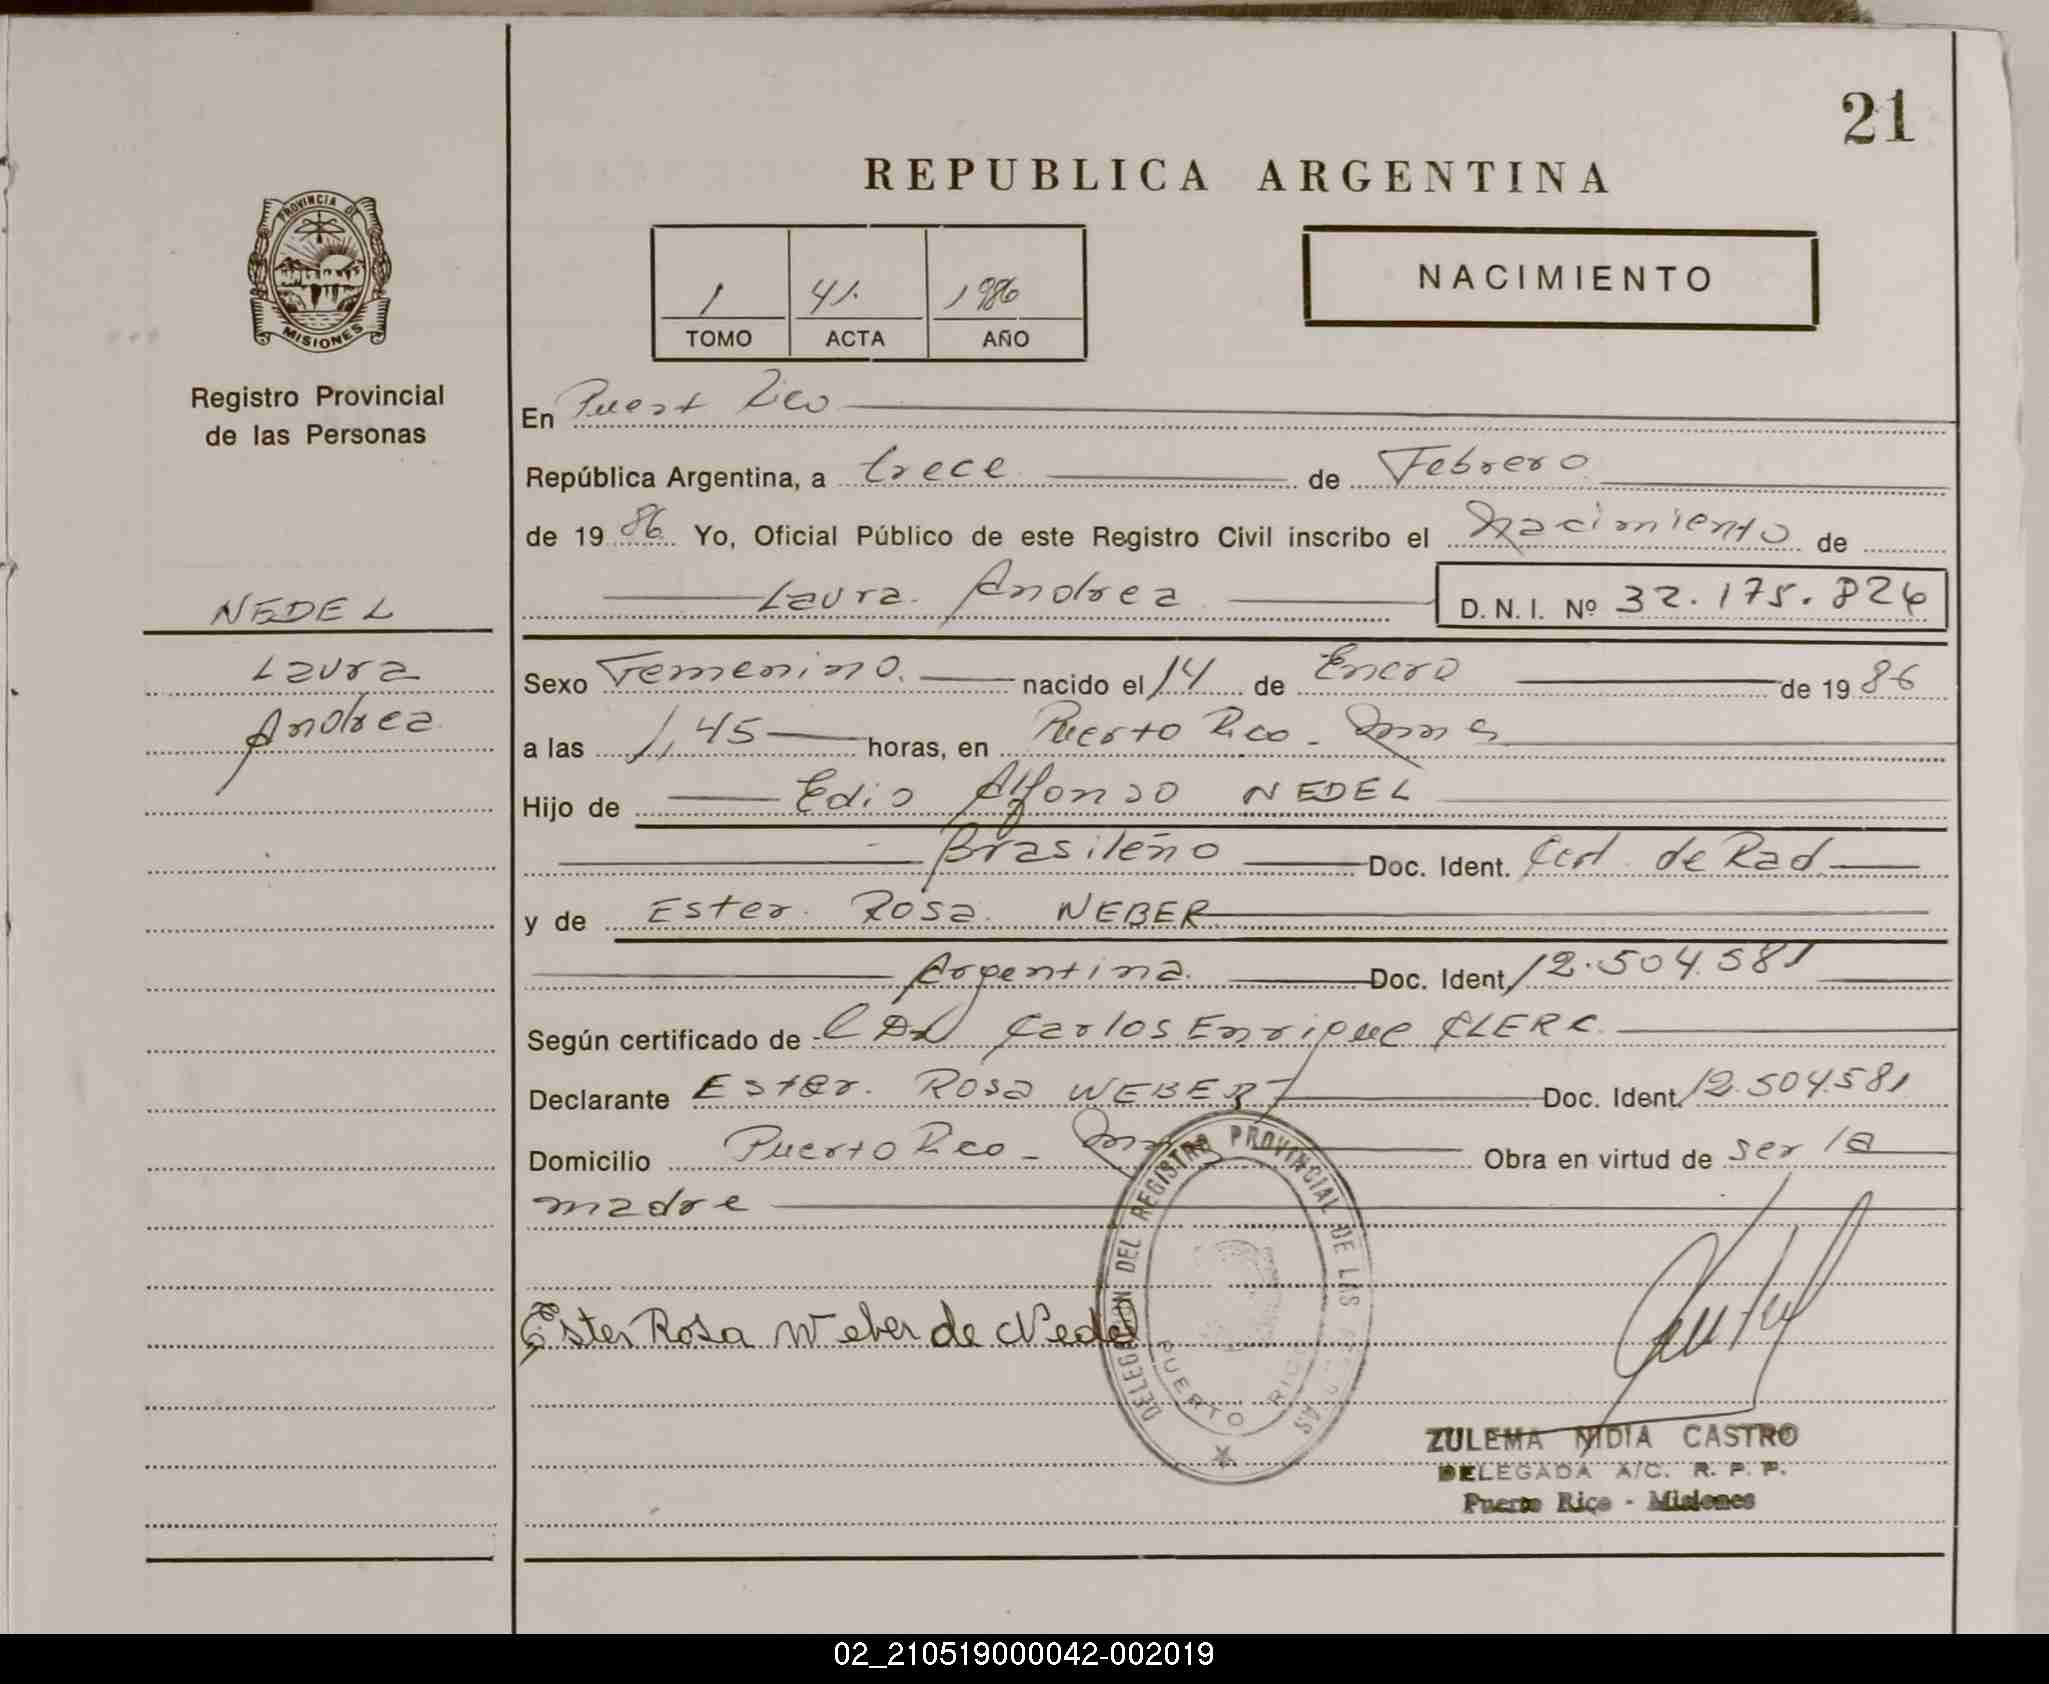 21
REPUBLICA ARGENTINA
PROVINCIA DE
MISIONES
Registro Provincial
de las Personas
1 41. 1986
TOMO ACTA AÑO
NACIMIENTO
En Puert Rico
República Argentina, a trece de Febrero
de 19 86 Yo, Oficial Público de este Registro Civil inscribo el Nacimiento de
Laura Andrea D. N. I. Nº 32.175.826
NEDEL
Laura
Andrea
Sexo Femenino. nacido el 14 de Enero de 19 86
a las 1,45 horas, en Puerto Rico - Mnes
Hijo de Edio Alfonso NEDEL
Brasileño Doc. Ident. Cert. de Rad.
y de Ester Rosa WEBER
Argentina. Doc. Ident. 12.504.581
Según certificado de Carlos Enrique CLERC
Declarante Ester Rosa WEBER Doc. Ident. 12.504.581
Domicilio Puerto Rico - Mnes Obra en virtud de ser la
madre
Ester Rosa Weber de Nedel
DELEGACION DEL REGISTRO PROVINCIAL DE LAS PERSONAS
PUERTO RICO
ZULEMA NIDIA CASTRO
DELEGADA A/C. R. P. P.
Puerto Rico - Misiones
02_210519000042-002019